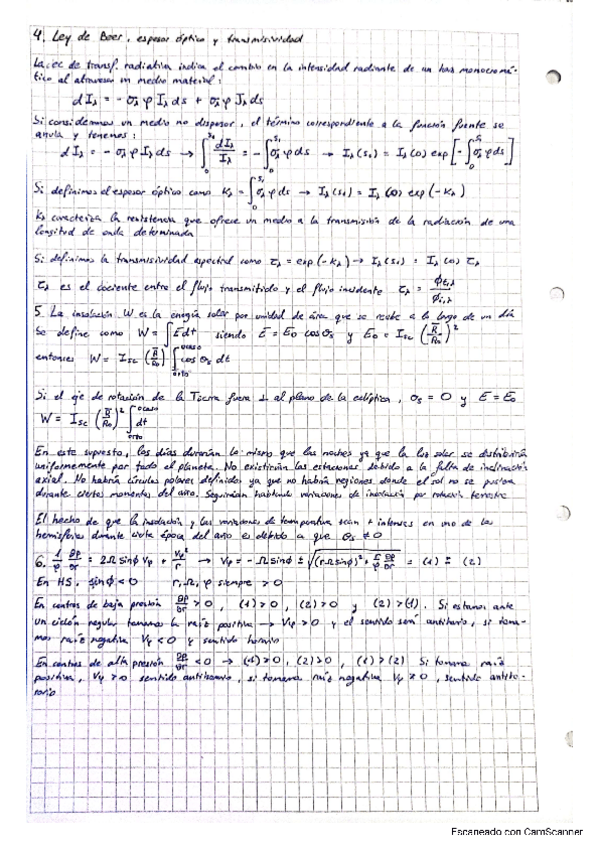 4. Ley de Beer, espesor óptico y transmisividad
La ec de transf. radiativa indica el cambio en la intensidad radiante de un haz monocromá-
tico al atravesar un medio material:
dIλ = - σλ ρ Iλ ds + σλ ρ Jλ ds
Si consideramos un medio no dispersor, el término correspondiente a la función fuente se
anula y tenemos:
dIλ = - σλ ρ Iλ ds → ∫₀^s₁ dIλ/Iλ = - ∫₀^s₁ σλ ρ ds → Iλ(s₁) = Iλ(0) exp[-∫₀^s₁ σλ ρ ds]
Si definimos el espesor óptico como Kλ = ∫₀^s₁ σλ ρ ds → Iλ(s₁) = Iλ(0) exp(-Kλ)
Kλ caracteriza la resistencia que ofrece un medio a la transmisión de la radiación de una
longitud de onda determinada
Si definimos la transmisividad espectral como τλ = exp(-Kλ) → Iλ(s₁) = Iλ(0) τλ
τλ es el cociente entre el flujo transmitido y el flujo incidente τλ = Φt,λ/Φi,λ
5. La insolación W es la energía solar por unidad de área que se recibe a lo largo de un día
Se define como W = ∫E dt siendo E = E₀ cos θs y E₀ = Isc (R̄/R₀)²
entonces W = Isc (R̄/R₀)² ∫orto^ocaso cos θs dt
Si el eje de rotación de la Tierra fuera ⊥ al plano de la eclíptica, θs = 0 y E = E₀
W = Isc (R̄/R₀)² ∫orto^ocaso dt
En este supuesto, los días durarían lo mismo que las noches ya que la luz solar se distribuiría
uniformemente por todo el planeta. No existirían las estaciones debido a la falta de inclinación
axial. No habría círculos polares definidos ya que no habría regiones donde el sol no se pusiera
durante ciertos momentos del año. Seguirían habiendo variaciones de insolación por rotación terrestre
El hecho de que la insolación y las variaciones de temperatura sean + intensas en uno de los
hemisferios durante cierta época del año es debido a que θs ≠ 0
6. 1/ρ ∂p/∂r = 2Ω sinϕ Vφ + Vφ²/r → Vφ = - Ω sinϕ ± √((rΩ sinϕ)² + r/ρ ∂p/∂r) = (1) ± (2)
En HS, sinϕ < 0 r, Ω, ρ siempre > 0
En centros de baja presión ∂p/∂r > 0, (1) > 0, (2) > 0 y (2) > (1). Si estamos ante
un ciclón regular tomamos la raíz positiva → Vφ > 0 y el sentido será antihorario, si toma-
mos raíz negativa Vφ < 0 y sentido horario
En centros de alta presión ∂p/∂r < 0 → (1) > 0, (2) > 0, (1) > (2) Si tomamos raíz
positiva, Vφ > 0 sentido antihorario, si tomamos raíz negativa Vφ > 0, sentido antiho-
rario
Escaneado con CamScanner